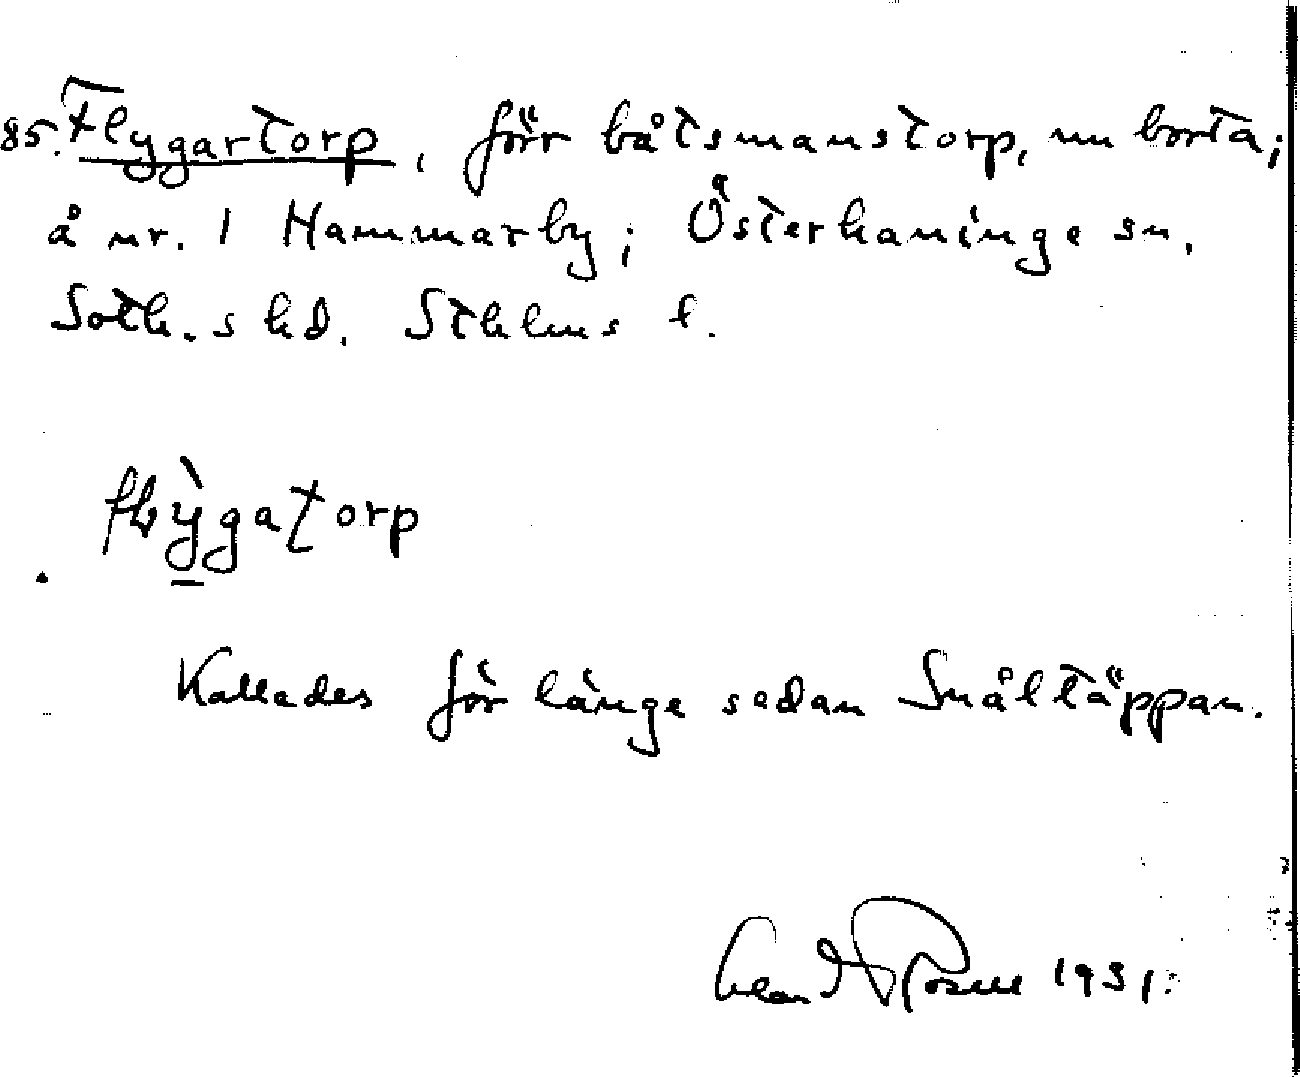 85. Flygartorp, förr båtsmanstorp, nu borta;
å nr. 1 Hammarby; Österhaninge sn.
Soth.s hd. Sthlms l.
flỳgatorp
Kallades för länge sedan Snåltäppan.
1931.